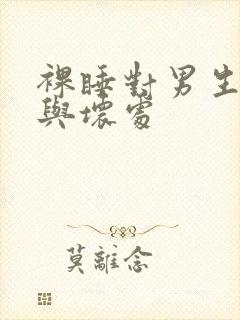 裸睡對男生
與壞處
莫離念